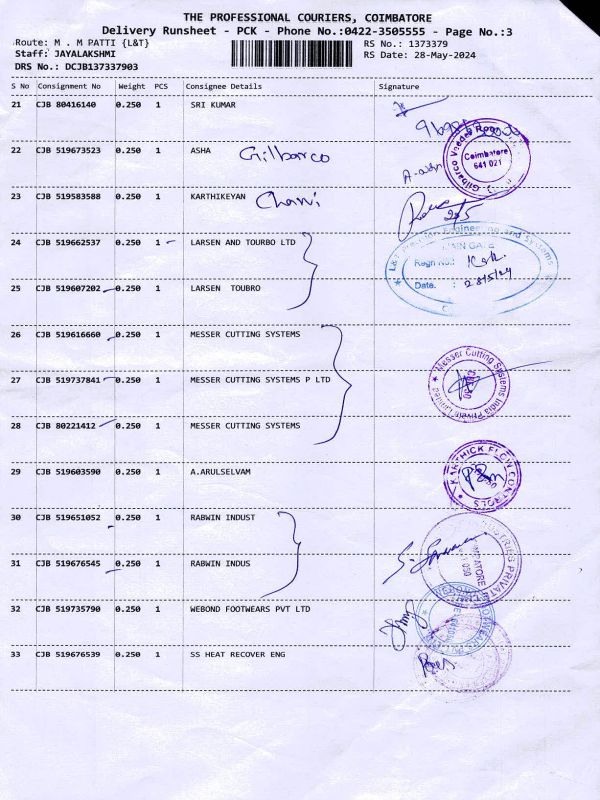 THE PROFESSIONAL COURIERS, COIMBATORE
Delivery Runsheet - PCK - Phone No.:0422-3505555 - Page No.:3
Route: M . M PATTI {L&T} RS No.: 1373379
Staff: JAYALAKSHMI RS Date: 28-May-2024
DRS No.: DCJB137337903
S No Consignment No Weight PCS Consignee Details Signature
21 CJB 80416140 0.250 1 SRI KUMAR
22 CJB 519673523 0.250 1 ASHA Gilbarco
Gilbarco Veeder Root
Coimbatore
641 021
23 CJB 519583588 0.250 1 KARTHIKEYAN
24 CJB 519662537 0.250 1 LARSEN AND TOURBO LTD
MAIN GATE
Regn No.:
Date. : 28/5/24
25 CJB 519607202 0.250 1 LARSEN TOUBRO
26 CJB 519616660 0.250 1 MESSER CUTTING SYSTEMS
27 CJB 519737841 0.250 1 MESSER CUTTING SYSTEMS P LTD
Messer Cutting Systems India Private Limited
28 CJB 80221412 0.250 1 MESSER CUTTING SYSTEMS
29 CJB 519603590 0.250 1 A.ARULSELVAM
KARTHICK FLOW CONTROLS
30 CJB 519651052 0.250 1 RABWIN INDUST
31 CJB 519676545 0.250 1 RABWIN INDUS
32 CJB 519735790 0.250 1 WEBOND FOOTWEARS PVT LTD
33 CJB 519676539 0.250 1 SS HEAT RECOVER ENG